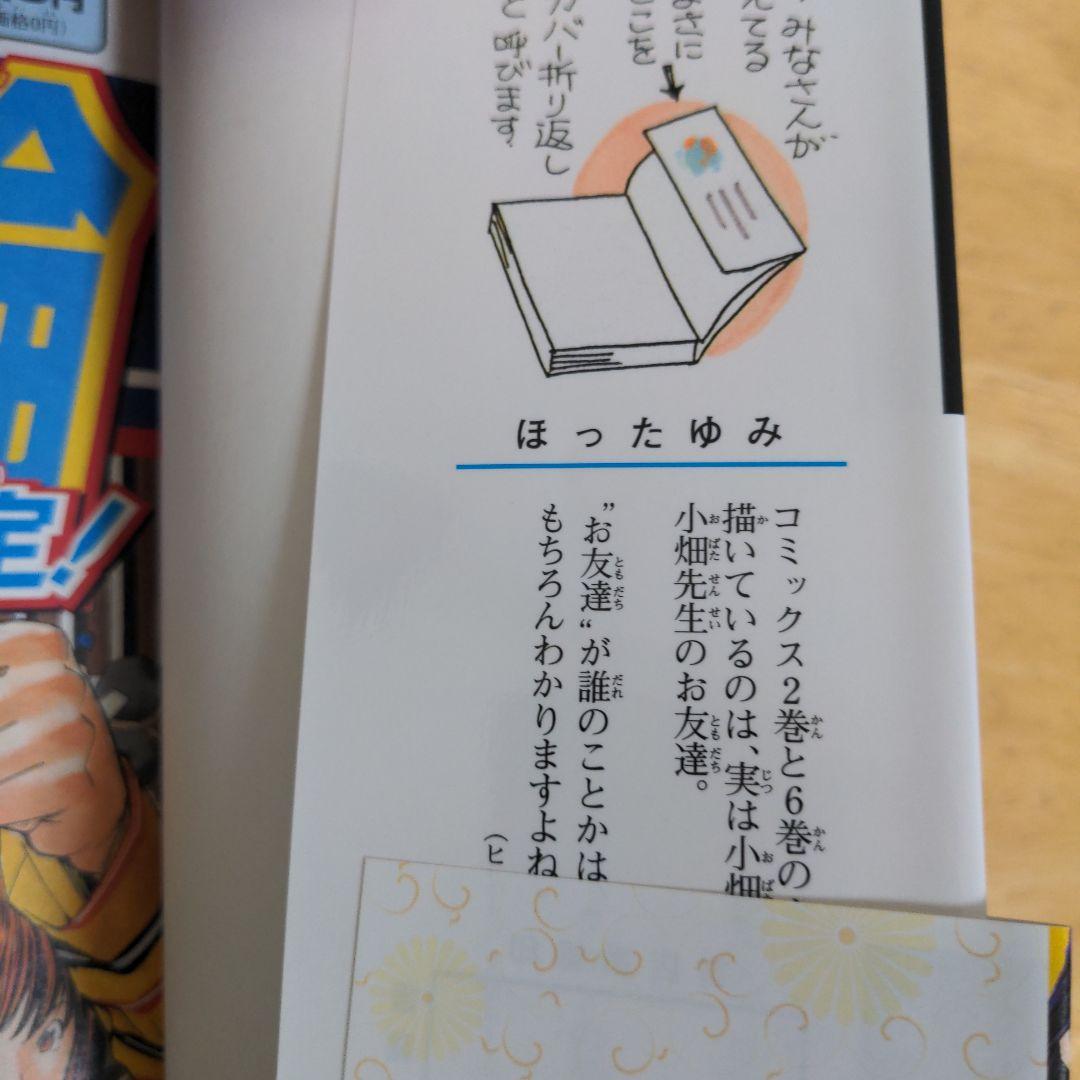 みなさんが
えてる
まさに
ここを
カバー折り返し
と呼びます
ほったゆみ
コミックス2巻と6巻の
描いているのは、実は小畑
小畑先生のお友達。
”お友達“が誰のことかは
もちろんわかりますよね
（ヒ
価格0円）
定！